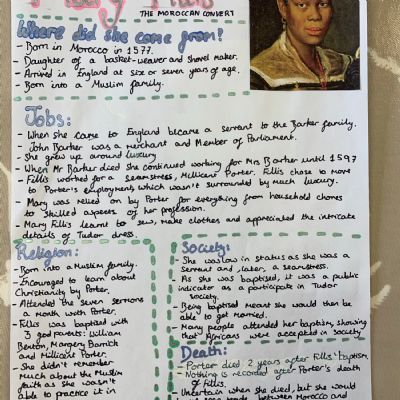 Mary Fillis
THE MOROCCAN CONVERT
Where did she come from?
- Born in Morocco in 1577.
- Daughter of a basket-weaver and shovel maker.
- Arrived in England at six or seven years of age.
- Born into a Muslim family.
Jobs:
- When she came to England became a servant to the Barker family.
- John Barker was a merchant and Member of Parliament.
- She grew up around luxury
- When Mr Barker died she continued working for Mrs Barker until 1597
- Fillis worked for a seamstress, Millicent Porter. Fillis chose to move
to Porter's employment, which wasn't surrounded by much luxury.
- Mary was relied on by Porter for everything from household chores
to skilled aspects of her profession.
- Mary Fillis learnt to sew, make clothes and appreciated the intricate
details of Tudor dress.
Religion:
- Born into a Muslim family.
- Encouraged to learn about
Christianity by Porter.
- Attended the seven sermons
a month with Porter.
- Fillis was baptised with
3 god parents: William
Benton, Margery Barrick
and Millicent Porter.
- She didn't remember
much about the Muslim
faith as she wasn't
able to practice it in
Society:
- She was low in status as she was a
servant and, later, a seamstress.
- As she was baptised, it was a public
indicator as a participate in Tudor
society.
- Being baptised meant she would then be
able to get married.
- Many people attended her baptism, showing
that Africans were accepted in society
Death:
- Porter died 2 years after Fillis' baptism.
- Nothing is recorded after Porter's death
of Fillis.
- Uncertain when she died, but she would
between Morocco and